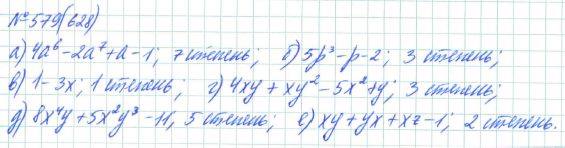 №579(628)
а) 4a⁶-2a⁷+a-1; 7 степень; б) 5p³-p-2; 3 степень;
в) 1-3x; 1 степень; г) 4xy+xy²-5x²+y; 3 степень;
д) 8x⁴y+5x²y³-11, 5 степень; е) xy+yx+xz-1; 2 степень.